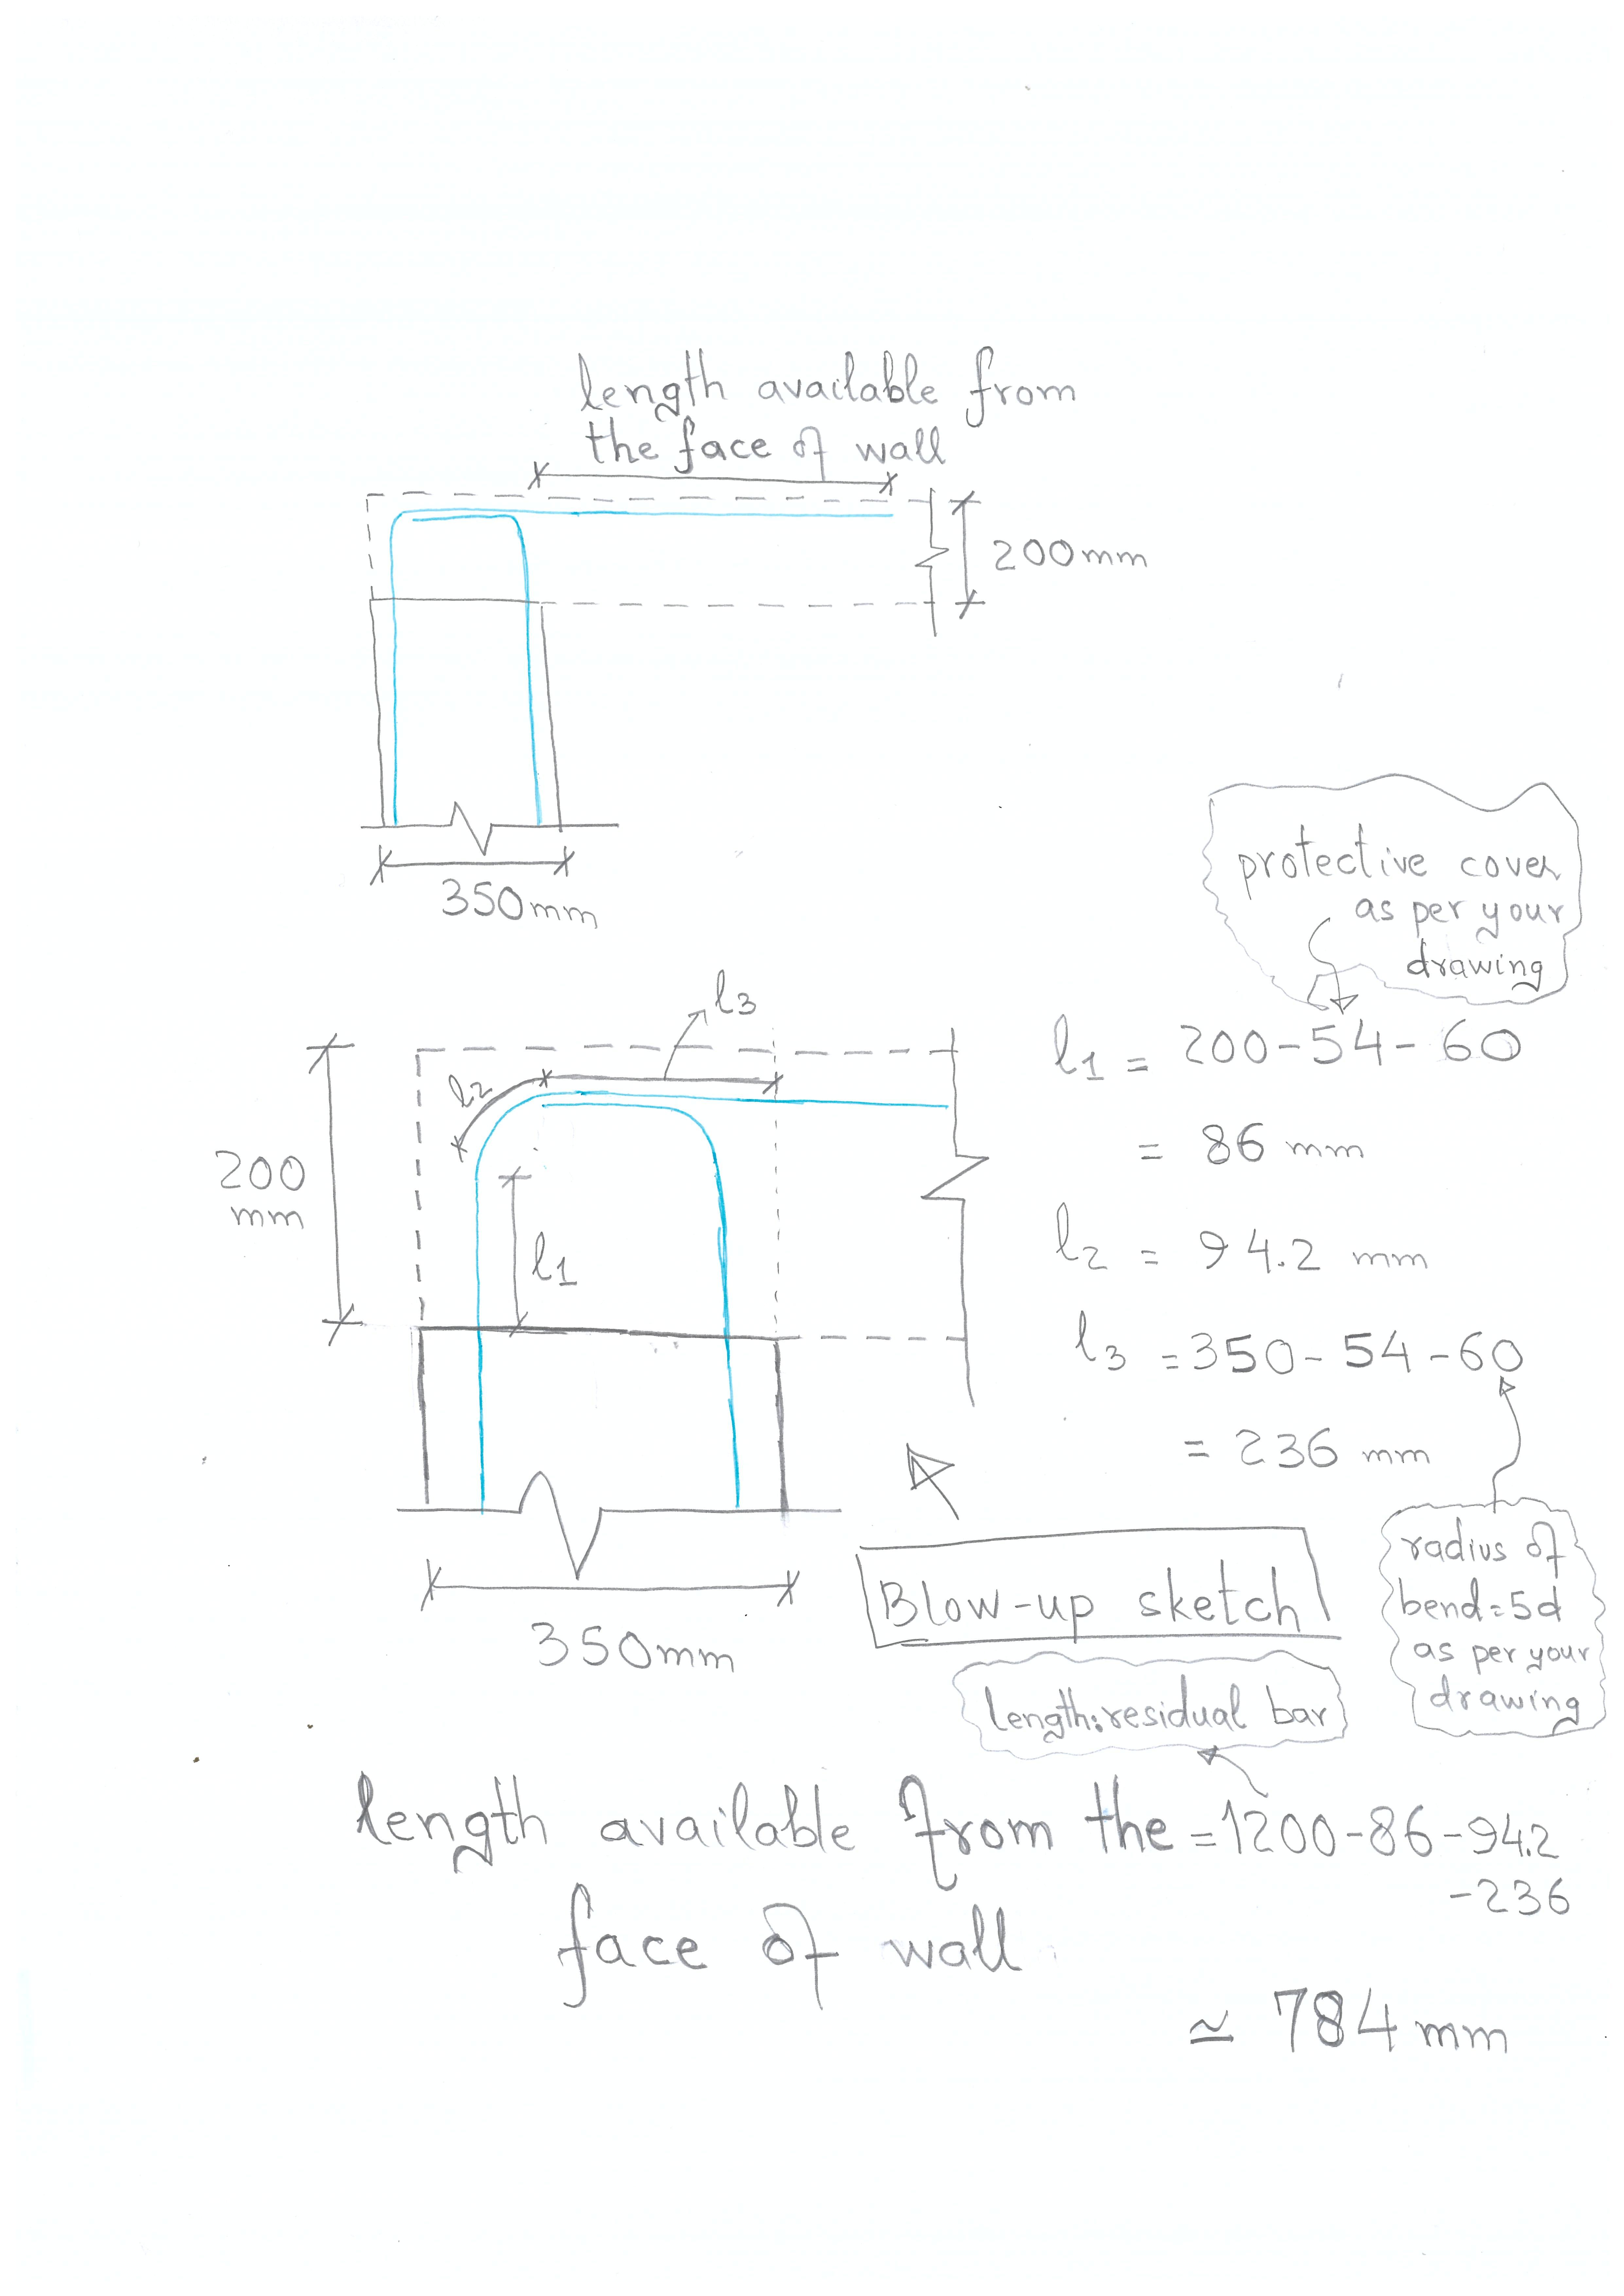 length available from
the face of wall
200mm
350mm
protective cover
as per your
drawing
l3
l2
l1
200
mm
350mm
l1 = 200-54-60
= 86 mm
l2 = 94.2 mm
l3 =350-54-60
= 236 mm
radius of
bend=5d
as per your
drawing
Blow-up sketch
length:residual bar
length available from the =1200-86-94.2
-236
face of wall
≃ 784mm